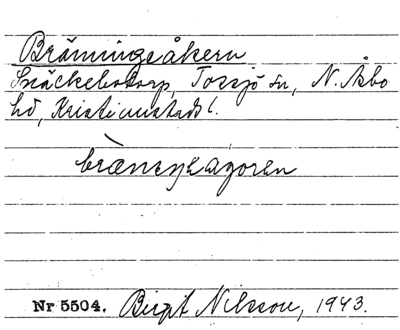 Bränningeåkern
Snäckestorp, Tossjö sn, N. Åsbo
hd, Kristianstads l.
Nr 5504. Birgit Nilsson, 1943.